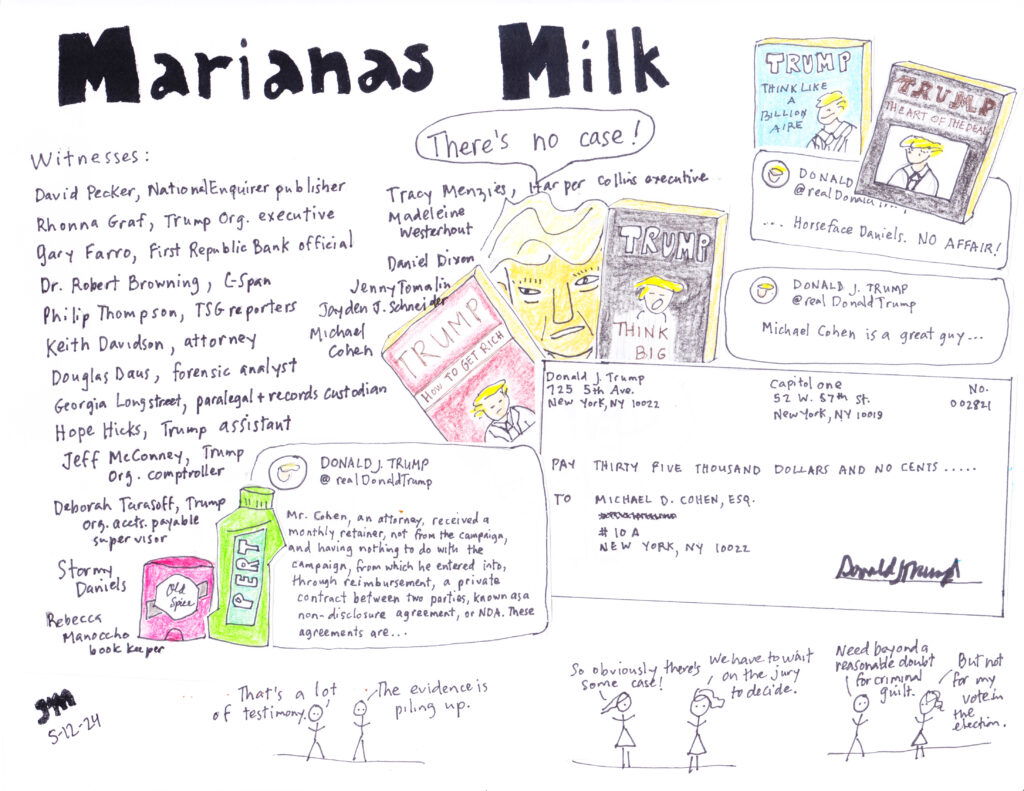 Marianas Milk
There's no case!
Witnesses:
David Pecker, National Enquirer publisher
Rhonna Graf, Trump Org. executive
Gary Farro, First Republic Bank official
Dr. Robert Browning, C-Span
Philip Thompson, TSG reporters
Keith Davidson, attorney
Douglas Daus, forensic analyst
Georgia Longstreet, paralegal + records custodian
Hope Hicks, Trump assistant
Jeff McConney, Trump
Org. comptroller
Deborah Tarasoff, Trump
org. accts. payable
supervisor
Stormy
Daniels
Rebecca
Manoccho
book keeper
Tracy Menzies, Harper Collins executive
Madeleine
Westerhout
Daniel Dixon
Jenny Tomalin
Jayden J. Schneider
Michael
Cohen
TRUMP
HOW TO GET RICH
TRUMP
THINK
BIG
TRUMP
THINK LIKE
A
BILLION
AIRE
TRUMP
THE ART OF THE DEAL
DONALD
@realDonald
... Horseface Daniels. NO AFFAIR!
DONALD J. TRUMP
@realDonaldTrump
Michael Cohen is a great guy...
Donald J. Trump
725 5th Ave.
New York, NY 10022
Capitol one
52 W. 57th St.
New York, NY 10019
No.
002821
PAY THIRTY FIVE THOUSAND DOLLARS AND NO CENTS .....
TO MICHAEL D. COHEN, ESQ.
# 10 A
NEW YORK, NY 10022
Donald J Trump
Old
Spice
PERT
DONALD J. TRUMP
@realDonaldTrump
Mr. Cohen, an attorney, received a
monthly retainer, not from the campaign,
and having nothing to do with the
campaign, from which he entered into,
through reimbursement, a private
contract between two parties, known as a
non-disclosure agreement, or NDA. These
agreements are...
5-12-24
That's a lot
of testimony.
The evidence is
piling up.
So obviously there's
some case!
We have to wait
on the jury
to decide.
Need beyond a
reasonable doubt
for criminal
guilt.
But not
for my
vote in
the
election.